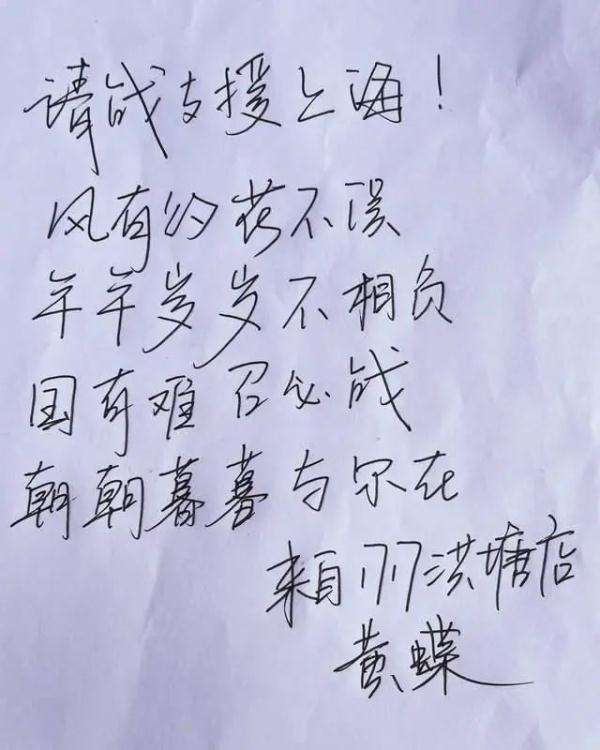 请战支援上海！
风有约花不误
年年岁岁不相负
国有难召必战
朝朝暮暮与尔在
来自177洪塘店
黄蝶